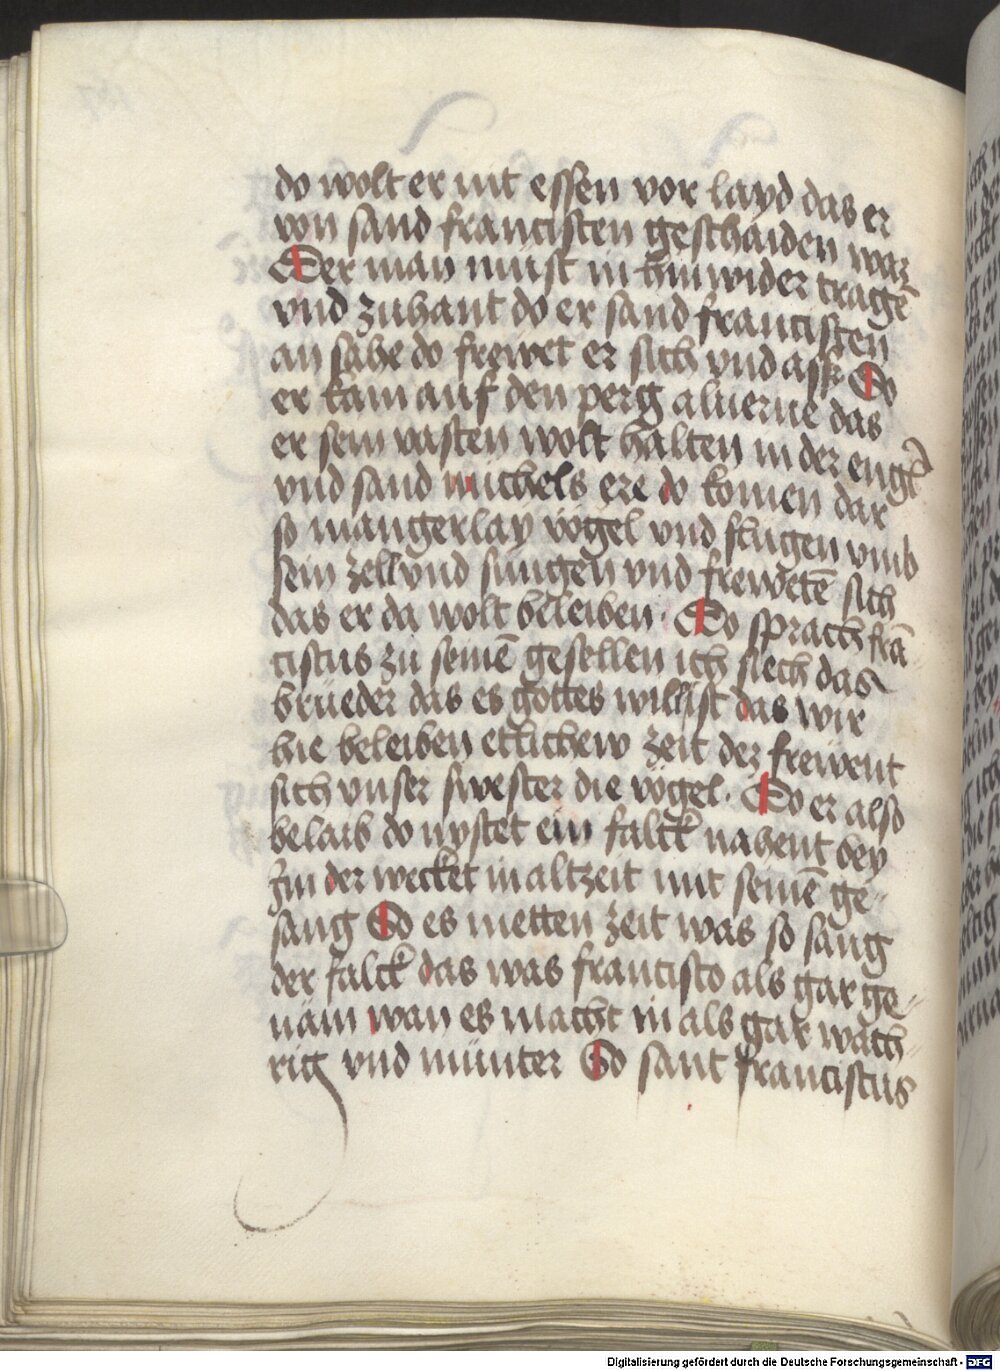 do wolt er nit essen vor layd das er
von sand francisten geschaiden was
Der man must in hinwider tragē
vnd zuhant do er sand francisten
an sahe do frewet er sich vnd aß Do
er kam auf den perg aluerne das
er sein vasten wolt halten in der engel
vnd sand michels ere do komen dar
so mangerlay vögel vnd flugen vmb
sein zell vnd sungen vnd frewetē sich
das er da wolt beleiben. Do sprach frā
ciscus zü seinē gesellen ich siech das
brüeder das es gottes will ist das wir
hie beleiben etlichew zeit der frewent
sich vnser swester die vögel. Do er also
belaib do nystet ein falck nahent bey
Im der wecket in altzeit mit seinē ge-
sang So es metten zeit was so sang
der falck das was francisco als gar ge-
näm wan es macht in als gar wach
rig vnd münter So sant franciscus
Digitalisierung gefördert durch die Deutsche Forschungsgemeinschaft - DFG